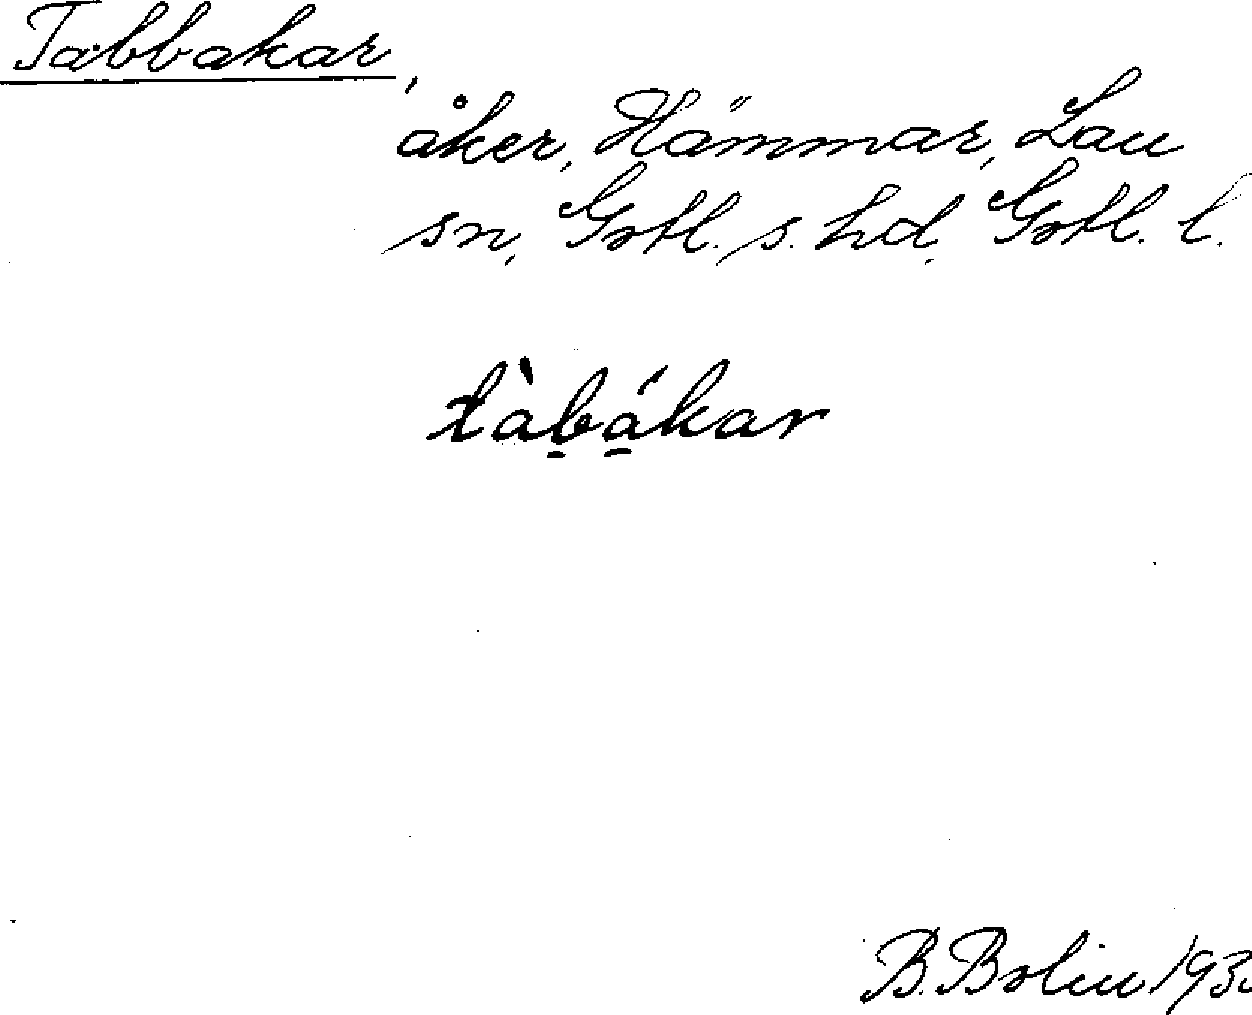 Tabbakar,
åker, Hämmar, Lau
sn, Gotl. s. hd, Gotl. l.
tàb̠á̠kar
B. Bolin 193